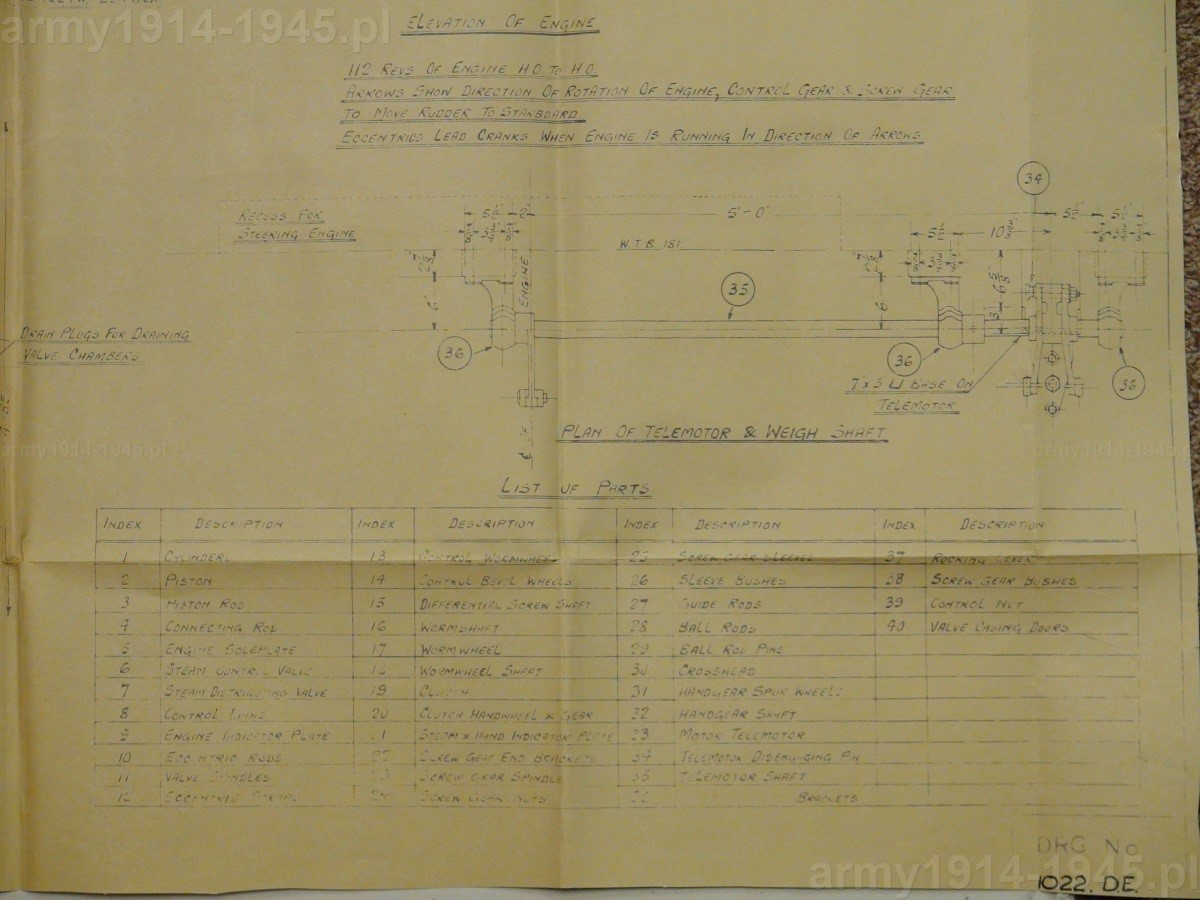 army1914-1945.pl
ELEVATION OF ENGINE
112 REVS OF ENGINE H.O. TO H.O.
ARROWS SHOW DIRECTION OF ROTATION OF ENGINE, CONTROL GEAR & SCREW GEAR
TO MOVE RUDDER TO STARBOARD
ECCENTRICS LEAD CRANKS WHEN ENGINE IS RUNNING IN DIRECTION OF ARROWS
RECESS FOR
STEERING ENGINE
5½ 2
5'-0"
34
5½ 5½
5½ 10⅜
W.T.B. 181
ENGINE
2⅞
3¾
6
2⅞
3¾
6
6⅝
3
35
36
36
36
DRAIN PLUGS FOR DRAINING
VALVE CHAMBERS
7" x 3" BASE ON
TELEMOTOR
army1914-1945.pl
army1914-1945.pl
PLAN OF TELEMOTOR & WEIGH SHAFT
LIST OF PARTS
INDEX DESCRIPTION INDEX DESCRIPTION INDEX DESCRIPTION INDEX DESCRIPTION
1 CYLINDERS 13 CONTROL WORMWHEEL 25 SCREW GEAR SLEEVES 37 ROCKING LEVER
2 PISTON 14 CONTROL BEVEL WHEELS 26 SLEEVE BUSHES 38 SCREW GEAR BUSHES
3 PISTON ROD 15 DIFFERENTIAL SCREW SHAFT 27 GUIDE RODS 39 CONTROL NUT
4 CONNECTING ROD 16 WORMSHAFT 28 BALL RODS 40 VALVE CASING DOORS
5 ENGINE SOLEPLATE 17 WORMWHEEL 29 BALL ROD PINS
6 STEAM CONTROL VALVE 18 WORMWHEEL SHAFT 30 CROSSHEAD
7 STEAM DISTRIBUTING VALVE 19 CLUTCH 31 HANDGEAR SPUR WHEELS
8 CONTROL LINKS 20 CLUTCH HANDWHEEL & GEAR 32 HANDGEAR SHAFT
9 ENGINE INDICATOR PLATE 21 STEAM & HAND INDICATOR PLATE 33 MOTOR TELEMOTOR
10 ECCENTRIC RODS 22 SCREW GEAR END BRACKETS 34 TELEMOTOR DISENGAGING PIN
11 VALVE SPINDLES 23 SCREW GEAR SPINDLE 35 TELEMOTOR SHAFT
12 ECCENTRIC STRAPS 24 SCREW GEAR NUTS 36 BRACKETS
DRG No
army1914-1945.pl
1022. D.E.